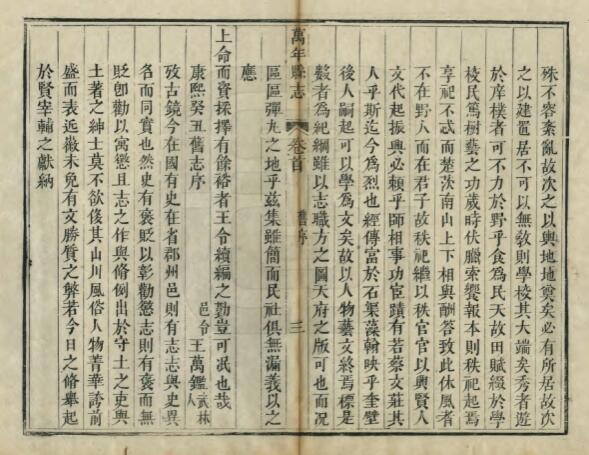 殊不容紊亂故次之以輿地地奠矣必有所居故次
之以建置居不可以無教則學校其大端矣秀者遊
於庠樸者可不力於野乎食為民天故田賦綴於學
校民篤樹藝之功歲時伏臘索饗報本則秩祀起焉
享祀不忒而楚茨南山上下相與酬答致此休風者
不在野人而在君子故秩祀繼以秩官官以興賢人
文代起振興必賴乎師相事功宦蹟有若蔡文莊其
人乎斯迄今為烈也經傳富於石渠藻翰映乎奎壁
後人嗣起可以學為文矣故以人物藝文終焉標是
數者為紀綱雖以志職方之圖天府之版可也而况
萬年縣志
卷首
舊序
三
區區彈丸之地乎茲集雖簡而民社俱無漏義以之
應
上命而資採擇有餘裕者王令續編之勤豈可泯也哉
康熙癸丑舊志序
邑令王萬鑑武林人
攷古鏡今在國有史在省郡州邑則有志志與史異
名而同實也然史有褒貶以彰勸懲志則有褒而無
貶卽勸以寓懲且志之作與脩倒出於守土之吏與
土著之紳士莫不欲侈其山川風俗人物菁華誇前
盛而表近徽未免有文勝質之弊若今日之脩舉起
於賢宰輔之獻納